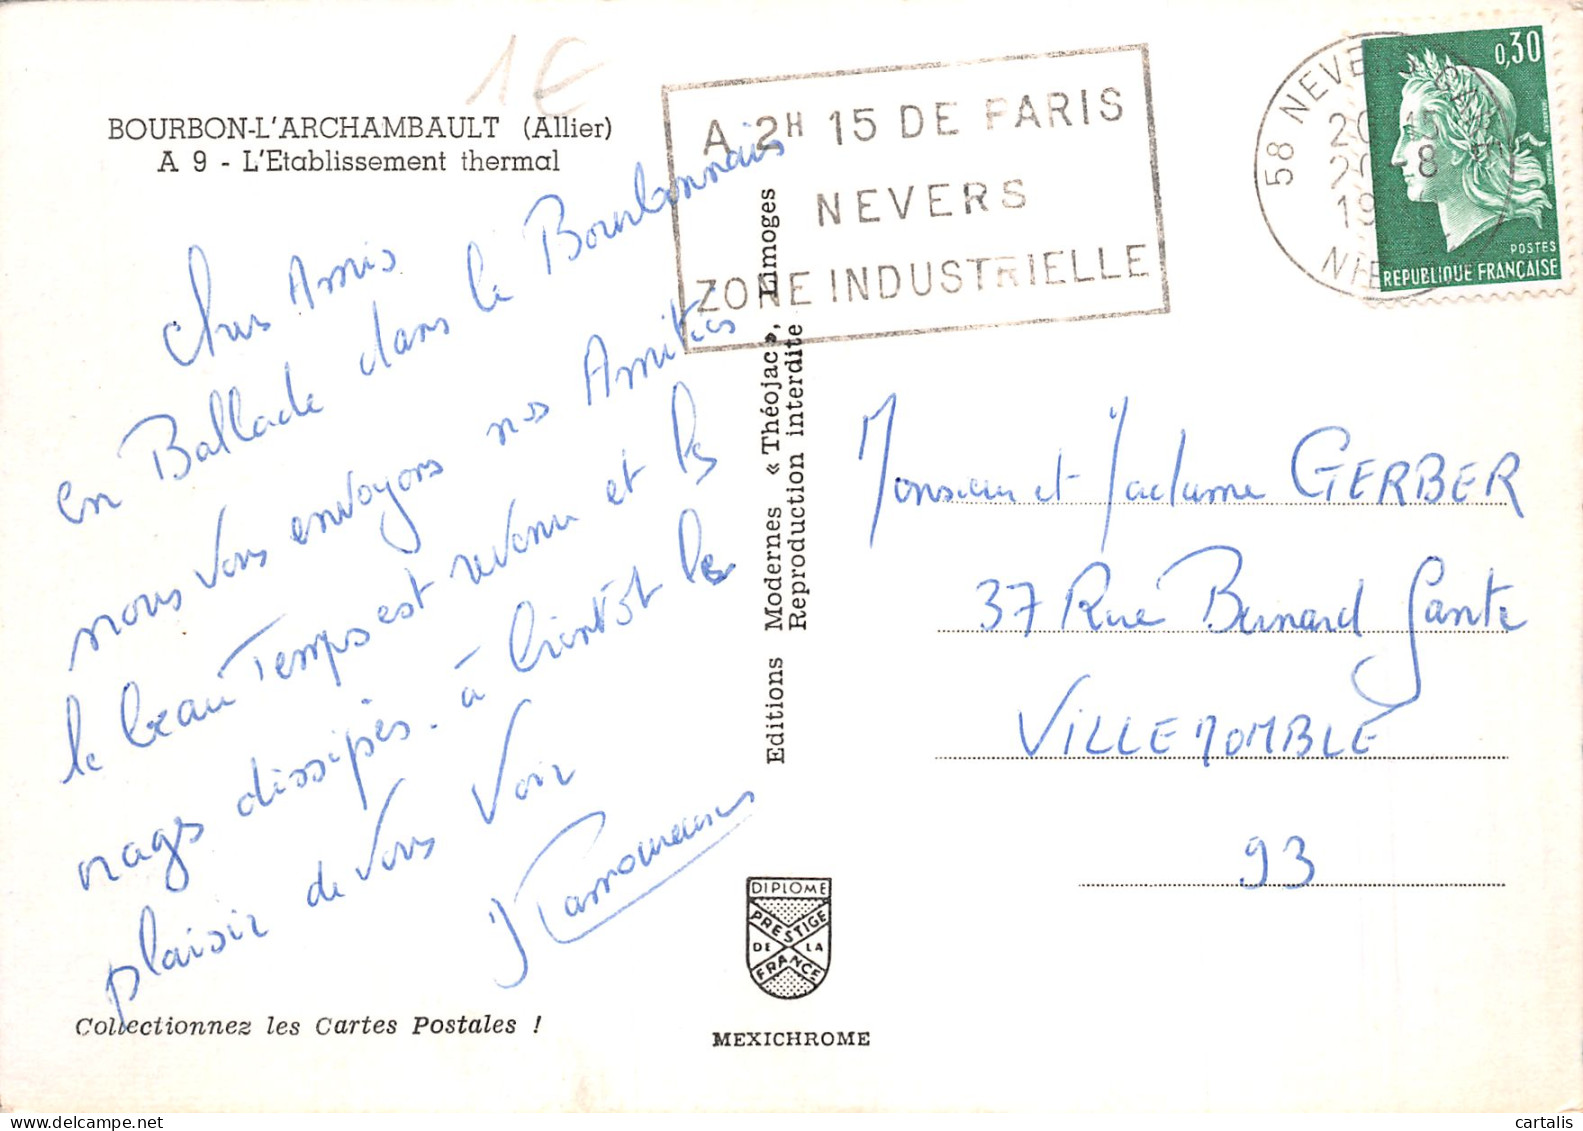 1€
BOURBON-L'ARCHAMBAULT (Allier)
A 9 - L'Etablissement thermal
Chers Amis
en Ballade dans le Bourbonnais
nous vous envoyons nos Amitiés
le beau Temps est revenu et les
nages dissipés - à bientôt le
plaisir de vous voir
Collectionnez les Cartes Postales !
Editions Modernes « Théojac », Limoges
Reproduction interdite
DIPLOME
PRESTIGE
DE LA
FRANCE
MEXICHROME
A 2H 15 DE PARIS
NEVERS
ZONE INDUSTRIELLE
58 NEVERS
20 15
20 -8
19
0,30
POSTES
REPUBLIQUE FRANÇAISE
Monsieur et Madame GERBER
37 Rue Bernard Gante
VILLEMOMBLE
93
cartalis